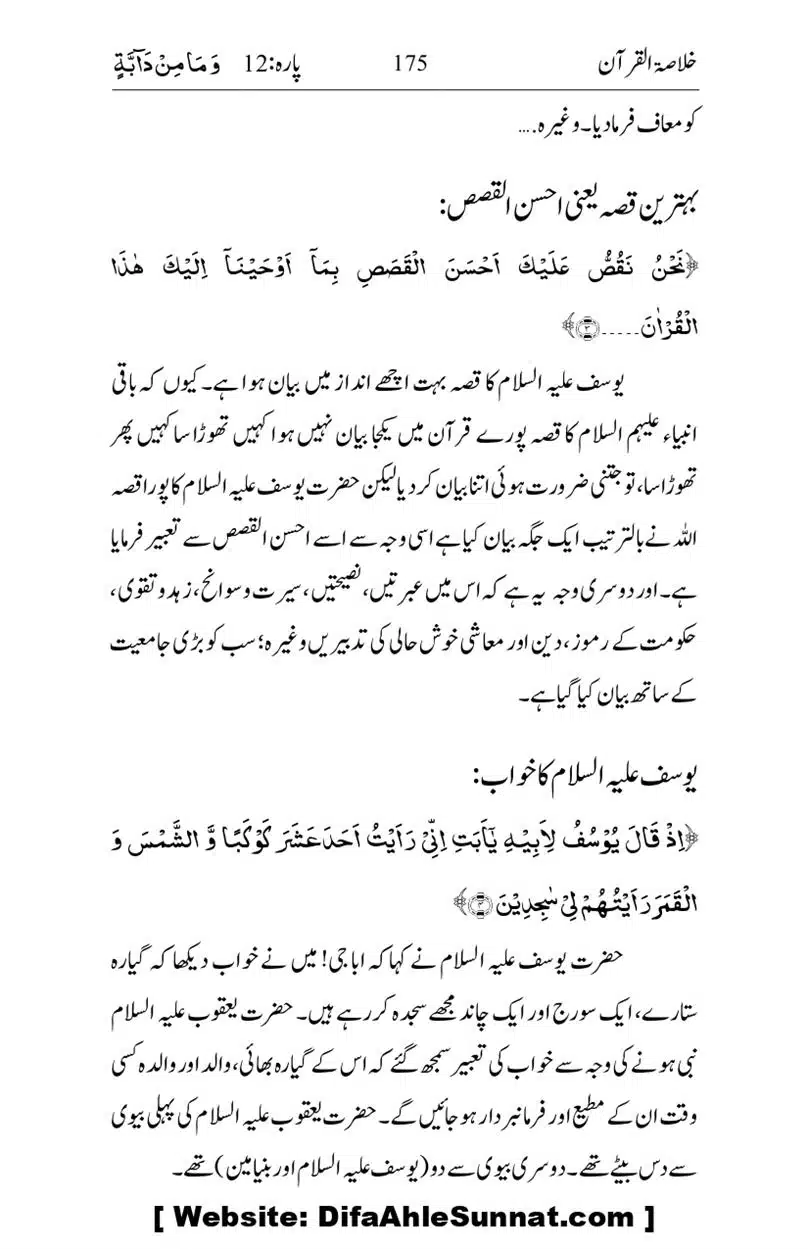 خلاصۃ القرآن 175 پارہ:12 وَ مَا مِنْ دَآبَّةٍ
کو معاف فرما دیا۔ وغیرہ....
بہترین قصہ یعنی احسن القصص:
﴿نَحْنُ نَقُصُّ عَلَيْكَ اَحْسَنَ الْقَصَصِ بِمَآ اَوْحَيْنَآ اِلَيْكَ هٰذَا
الْقُرْاٰنَ-----۝۳﴾
یوسف علیہ السلام کا قصہ بہت اچھے انداز میں بیان ہوا ہے۔ کیوں کہ باقی
انبیاء علیہم السلام کا قصہ پورے قرآن میں یکجا بیان نہیں ہوا کہیں تھوڑا سا کہیں پھر
تھوڑا سا، تو جتنی ضرورت ہوئی اتنا بیان کر دیا لیکن حضرت یوسف علیہ السلام کا پورا قصہ
اللہ نے بالترتیب ایک جگہ بیان کیا ہے اسی وجہ سے اسے احسن القصص سے تعبیر فرمایا
ہے۔ اور دوسری وجہ یہ ہے کہ اس میں عبرتیں، نصیحتیں، سیرت و سوانح، زہد و تقویٰ،
حکومت کے رموز، دین اور معاشی خوش حالی کی تدبیریں وغیرہ؛ سب کو بڑی جامعیت
کے ساتھ بیان کیا گیا ہے۔
یوسف علیہ السلام کا خواب:
﴿اِذْ قَالَ يُوْسُفُ لِاَبِيْهِ يٰۤاَبَتِ اِنِّيْ رَاَيْتُ اَحَدَ عَشَرَ كَوْكَبًا وَّ الشَّمْسَ وَ
الْقَمَرَ رَاَيْتُهُمْ لِيْ سٰجِدِيْنَ ۝۴﴾
حضرت یوسف علیہ السلام نے کہا کہ ابا جی! میں نے خواب دیکھا کہ گیارہ
ستارے، ایک سورج اور ایک چاند مجھے سجدہ کر رہے ہیں۔ حضرت یعقوب علیہ السلام
نبی ہونے کی وجہ سے خواب کی تعبیر سمجھ گئے کہ اس کے گیارہ بھائی، والد اور والدہ کسی
وقت ان کے مطیع اور فرمانبردار ہو جائیں گے۔ حضرت یعقوب علیہ السلام کی پہلی بیوی
سے دس بیٹے تھے۔ دوسری بیوی سے دو (یوسف علیہ السلام اور بنیامین) تھے۔
[ Website: DifaAhleSunnat.com ]